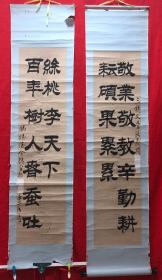 敬業敬教辛勤耕
耘碩果累累
百年樹人春蚕吐
絲桃李天下